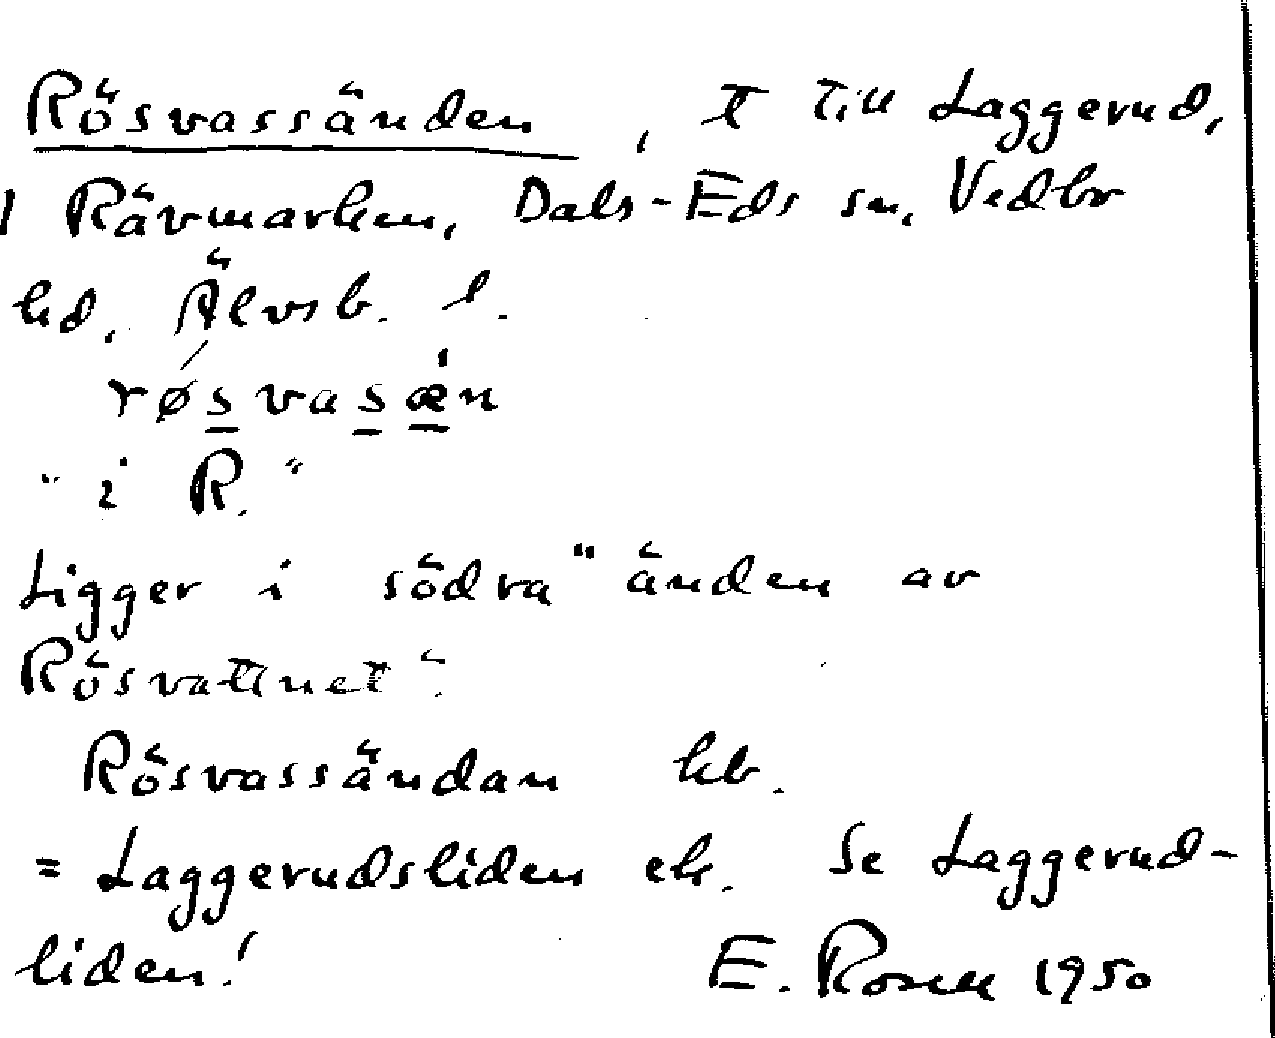 Rösvassänden, t till Laggerud,
1 Rävmarken, Dals-Eds sn, Vedbo
hd, Älvsb. l.
røsvasæ̀n
"i R."
Ligger i södra "änden av
Rösvattnet".
Rösvassändan kb.
= Laggerudsliden ek. Se Laggerud-
liden!
E. Rosell 1950